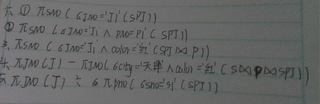 六. ① πSNO(σJNO='J1'(SPJ))
② πSNO(σJNO='J1'∧PNO='P1'(SPJ))
3. πSNO(σJNO='J1'∧color='红'(SPJ⋈P))
4. πJNO(J) - πJNO(σcity='天津'∧color='红'(S⋈P⋈SPJ))
5. πJNO(J) ÷ σπPNO(σSNO='S1'(SPJ))